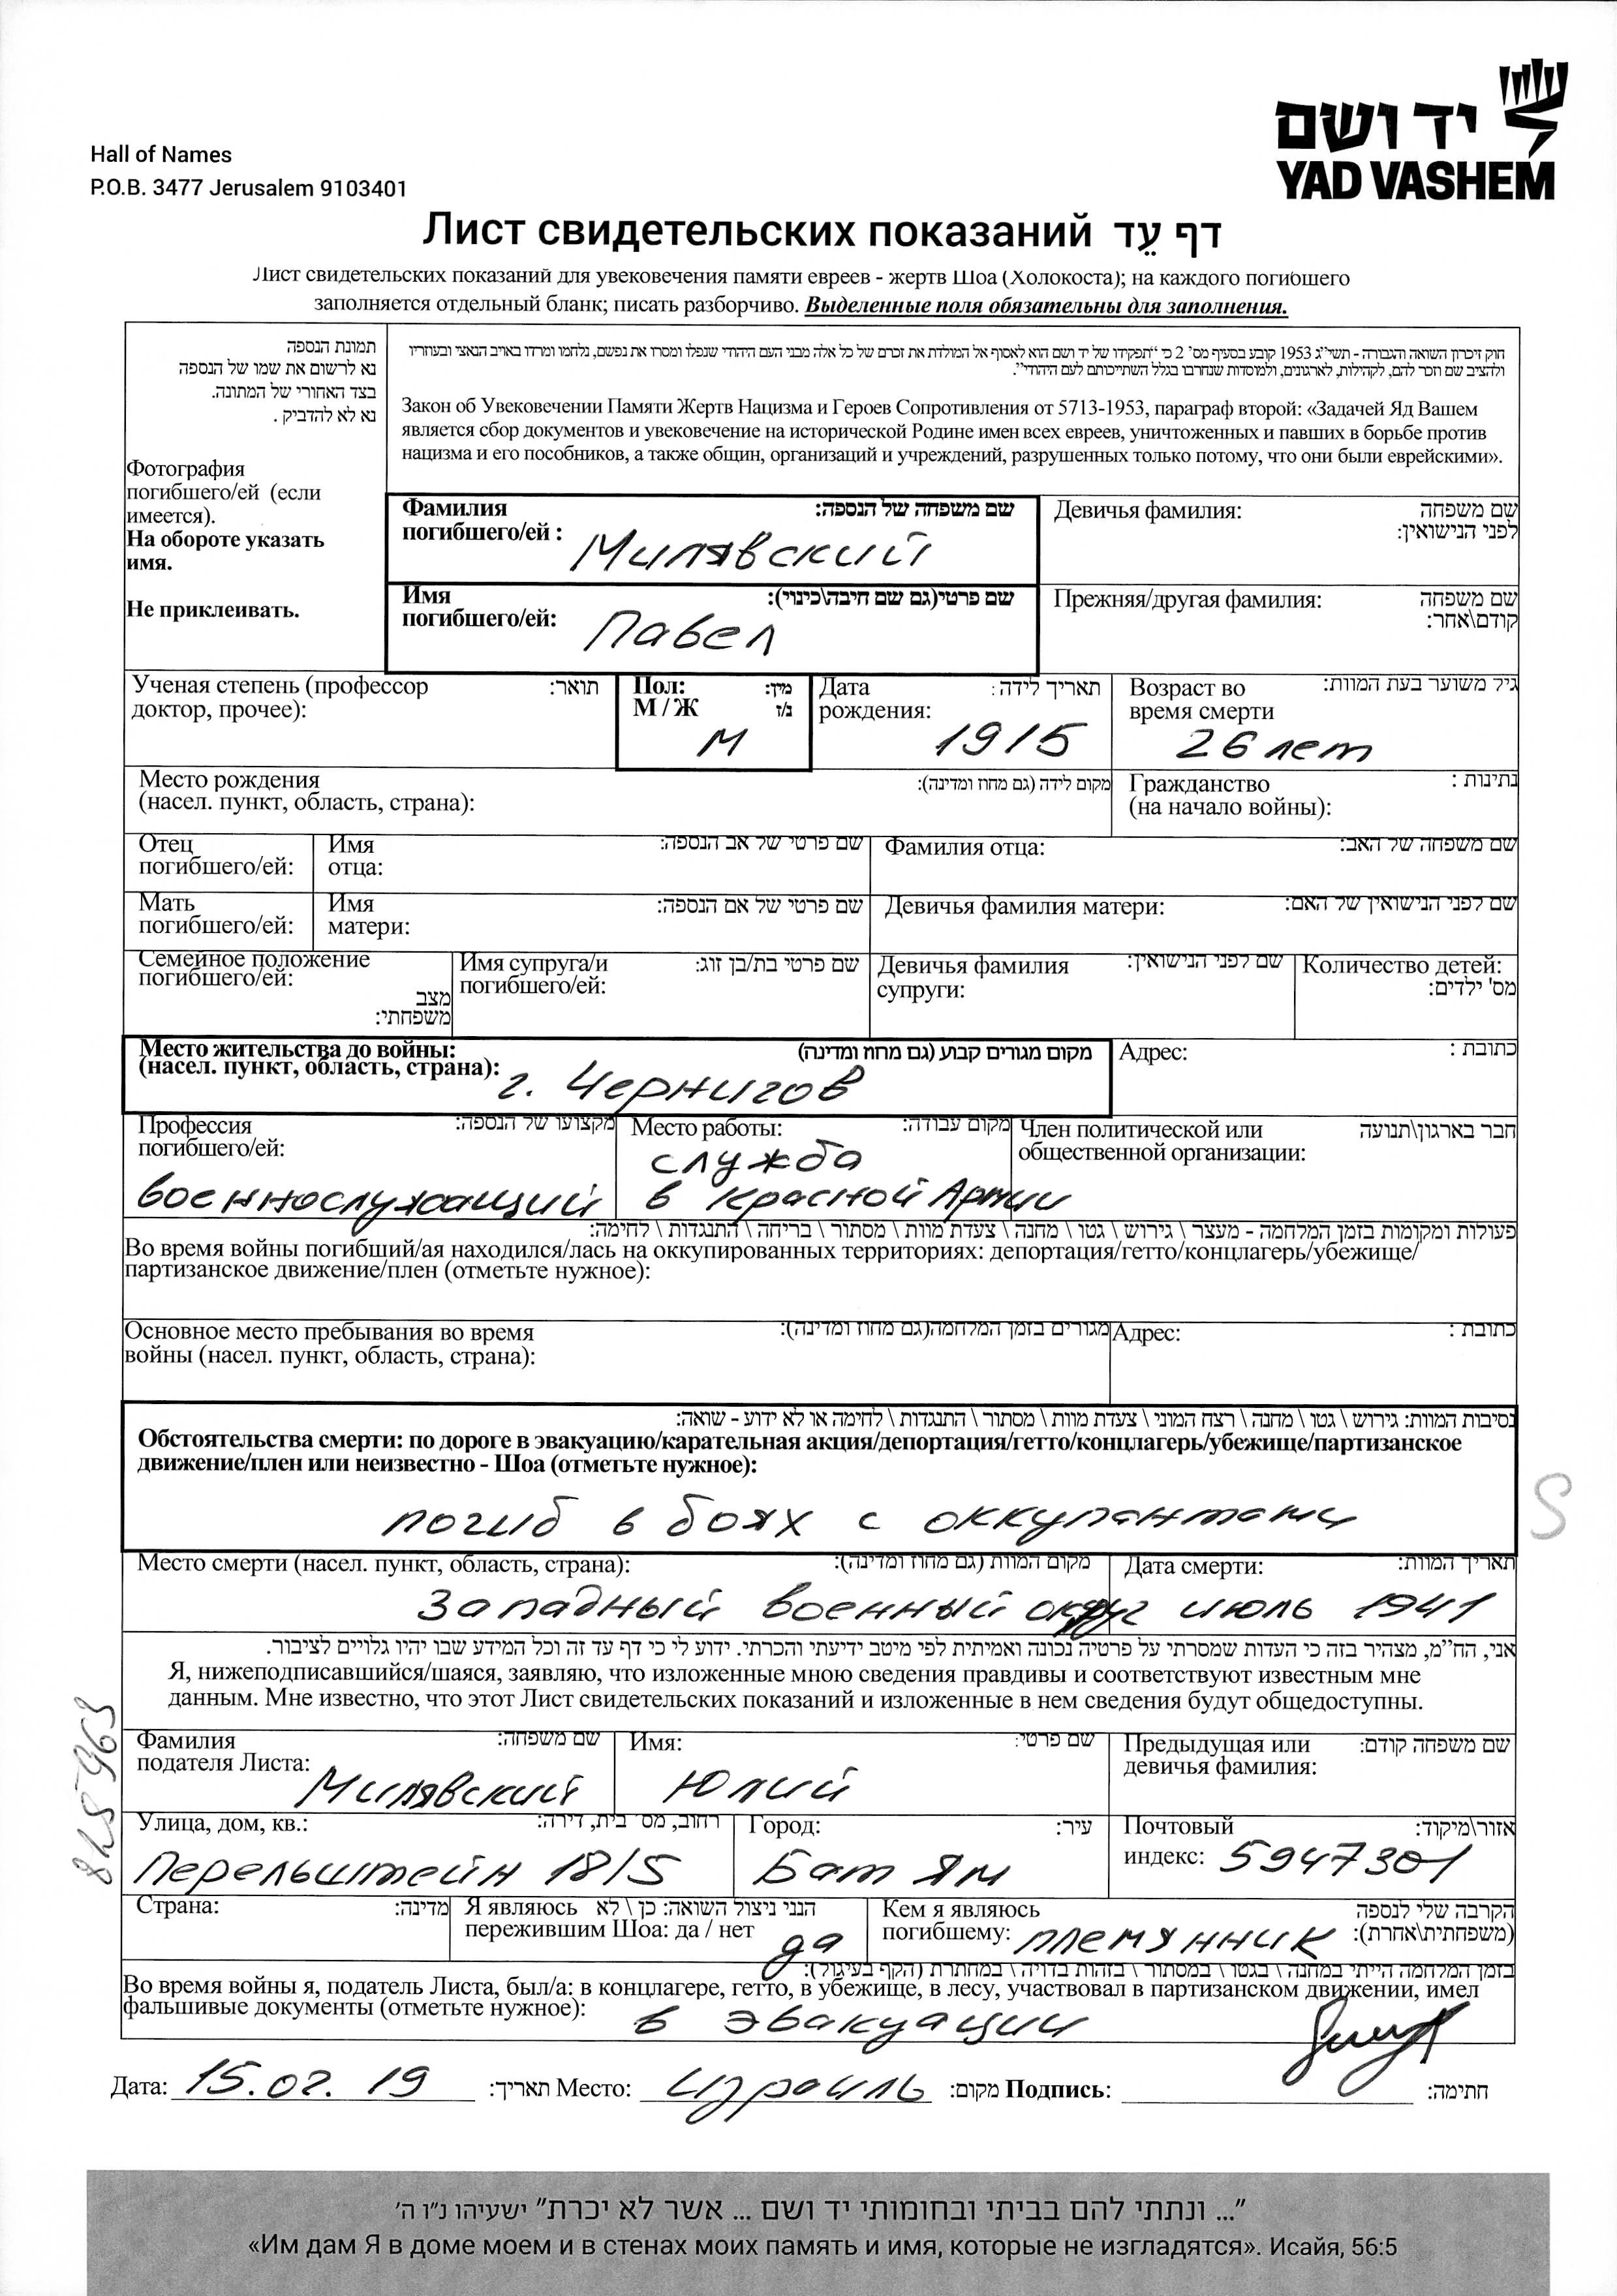 יד ושם
YAD VASHEM
Hall of Names
P.O.B. 3477 Jerusalem 9103401
Лист свидетельских показаний דף עֵד
Лист свидетельских показаний для увековечения памяти евреев - жертв Шоа (Холокоста); на каждого погибшего
заполняется отдельный бланк; писать разборчиво. Выделенные поля обязательны для заполнения.
תמונת הנספה
נא לרשום את שמו של הנספה
בצד האחורי של המתונה.
נא לא להדביק .
Фотография
погибшего/ей (если
имеется).
На обороте указать
имя.
Не приклеивать.
חוק זיכרון השואה והגבורה - תשי"ג 1953 קובע בסעיף מס' 2 כי "תפקידו של יד ושם הוא לאסוף אל המולדת את זכרם של כל אלה מבני העם היהודי שנפלו ומסרו את נפשם, נלחמו ומרדו באויב הנאצי ובעוזריו
ולהציב שם וזכר להם, לקהילות, לארגונים, ולמוסדות שנחרבו בגלל השתייכותם לעם היהודי".
Закон об Увековечении Памяти Жертв Нацизма и Героев Сопротивления от 5713-1953, параграф второй: «Задачей Яд Вашем
является сбор документов и увековечение на исторической Родине имен всех евреев, уничтоженных и павших в борьбе против
нацизма и его пособников, а также общин, организаций и учреждений, разрушенных только потому, что они были еврейскими».
Фамилия שם משפחה של הנספה:
погибшего/ей : Милявский
Девичья фамилия: שם משפחה
לפני הנישואין:
Имя שם פרטי(גם שם חיבה\כינוי):
погибшего/ей: Павел
Прежняя/другая фамилия: שם משפחה
קודם\אחר:
Ученая степень (профессор תואר:
доктор, прочее):
Пол: מין:
М / Ж ז/נ
М
Дата תאריך לידה :
рождения:
1915
Возраст во גיל משוער בעת המוות:
время смерти
26 лет
Место рождения מקום לידה (גם מחוז ומדינה):
(насел. пункт, область, страна):
Гражданство נתינות :
(на начало войны):
Отец
погибшего/ей:
Имя שם פרטי של אב הנספה:
отца:
Фамилия отца: שם משפחה של האב:
Мать
погибшего/ей:
Имя שם פרטי של אם הנספה:
матери:
Девичья фамилия матери: שם לפני הנישואין של האם:
Семейное положение
погибшего/ей:
מצב
משפחתי:
Имя супруга/и שם פרטי בת/בן זוג:
погибшего/ей:
Девичья фамилия שם לפני הנישואין:
супруги:
Количество детей:
מס' ילדים:
Место жительства до войны: מקום מגורים קבוע (גם מחוז ומדינה)
(насел. пункт, область, страна): г. Чернигов
Адрес: כתובת :
Профессия מקצועו של הנספה:
погибшего/ей:
военнослужащий
Место работы: מקום עבודה:
служба
в Красной Армии
Член политической или חבר בארגון\תנועה
общественной организации:
פעולות ומקומות בזמן המלחמה - מעצר \ גירוש \ גטו \ מחנה \ צעדת מוות \ מסתור \ בריחה \ התנגדות \ לחימה:
Во время войны погибший/ая находился/лась на оккупированных территориях: депортация/гетто/концлагерь/убежище/
партизанское движение/плен (отметьте нужное):
Основное место пребывания во время מגורים בזמן המלחמה(גם מחוז ומדינה):
войны (насел. пункт, область, страна):
Адрес: כתובת :
נסיבות המוות: גירוש \ גטו \ מחנה \ רצח המוני \ צעדת מוות \ מסתור \ התנגדות \ לחימה או לא ידוע - שואה:
Обстоятельства смерти: по дороге в эвакуацию/карательная акция/депортация/гетто/концлагерь/убежище/партизанское
движение/плен или неизвестно - Шоа (отметьте нужное):
погиб в боях с оккупантами
S
Место смерти (насел. пункт, область, страна): מקום המוות (גם מחוז ומדינה):
Западный военный округ
Дата смерти: תאריך המוות:
июль 1941
אני, הח"מ, מצהיר בזה כי העדות שמסרתי על פרטיה נכונה ואמיתית לפי מיטב ידיעתי והכרתי. ידוע לי כי דף עד זה וכל המידע שבו יהיו גלויים לציבור.
Я, нижеподписавшийся/шаяся, заявляю, что изложенные мною сведения правдивы и соответствуют известным мне
данным. Мне известно, что этот Лист свидетельских показаний и изложенные в нем сведения будут общедоступны.
Фамилия שם משפחה:
подателя Листа: Милявский
Имя: שם פרטי:
Юлий
Предыдущая или שם משפחה קודם:
девичья фамилия:
Улица, дом, кв.: רחוב, מס' בית, דירה:
Перельштейн 18/5
Город: עיר:
Бат Ям
Почтовый אזור\מיקוד:
индекс: 5947301
Страна: מדינה:
Я являюсь הנני ניצול השואה: כן \ לא
пережившим Шоа: да / нет да
Кем я являюсь הקרבה שלי לנספה
погибшему: племянник (משפחתית\אחרת):
בזמן המלחמה הייתי במחנה \ בגטו \ במסתור \ בזהות בדויה \ במחתרת (הקף בעיגול):
Во время войны я, податель Листа, был/а: в концлагере, гетто, в убежище, в лесу, участвовал в партизанском движении, имел
фальшивые документы (отметьте нужное): в эвакуации
Дата: 15.02.19 תאריך: Место: Израиль מקום: Подпись: חתימה:
"... ונתתי להם בביתי ובחומותי יד ושם ... אשר לא יכרת" ישעיהו נ"ו ה'
«Им дам Я в доме моем и в стенах моих память и имя, которые не изгладятся». Исайя, 56:5